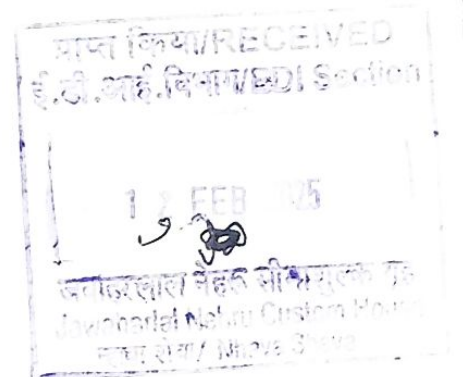 प्राप्त किया/RECEIVED
ई.डी.आई.विभाग/EDI Section
FEB
जवाहरलाल नेहरू सीमाशुल्क गृह
Jawaharlal Nehru Custom House
न्हावा शेवा/ Nhava Sheva